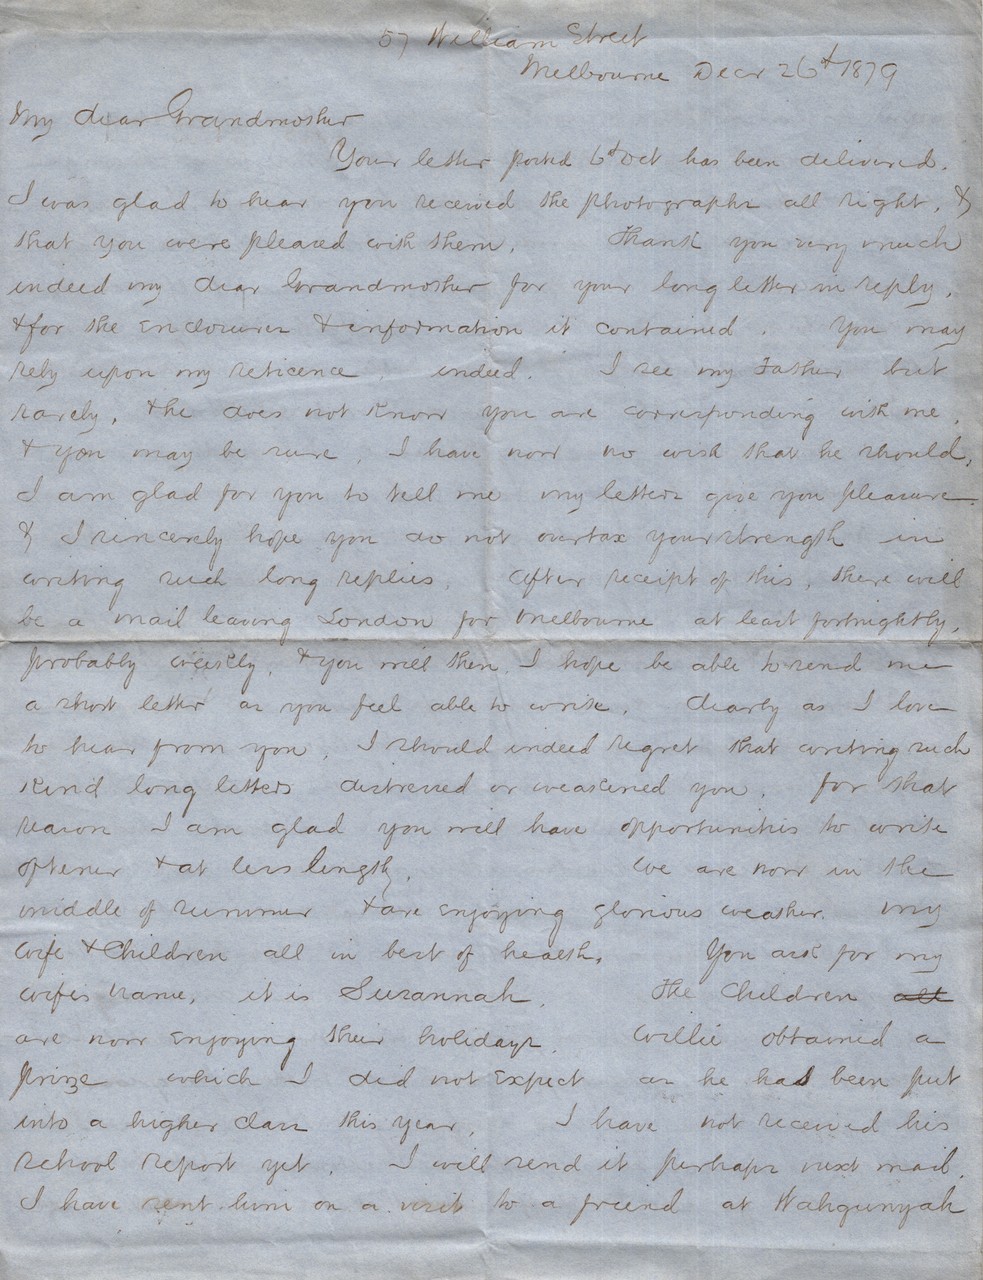 57 William Street
Melbourne Decr 26th 1879
My dear Grandmother
Your letter posted 6th Oct has been delivered.
I was glad to hear you received the photographs all right, &
that you were pleased with them. Thank you very much
indeed my dear Grandmother for your long letter in reply,
& for the enclosures & information it contained. You may
rely upon my reticence, indeed. I see my Father but
rarely, & he does not know you are corresponding with me,
& you may be sure, I have now no wish that he should,
I am glad for you to tell me my letters give you pleasure
& I sincerely hope you do not overtax your strength in
writing such long replies. After receipt of this, there will
be a mail leaving London for Melbourne at least fortnightly,
probably weekly, & you will then I hope be able to send me
a short letter as you feel able to write. Dearly as I love
to hear from you, I should indeed regret that writing such
kind long letters distressed or weakened you, for that
reason I am glad you will have opportunities to write
oftener & at less length. We are now in the
middle of summer & are enjoying glorious weather. My
wife & Children all in best of health. You ask for my
wifes name, it is Suzannah. The Children all
are now enjoying their holidays. Willie obtained a
prize which I did not expect as he had been put
into a higher class this year. I have not received his
school report yet. I will send it perhaps next mail.
I have sent him on a visit to a friend at Wahgunyah